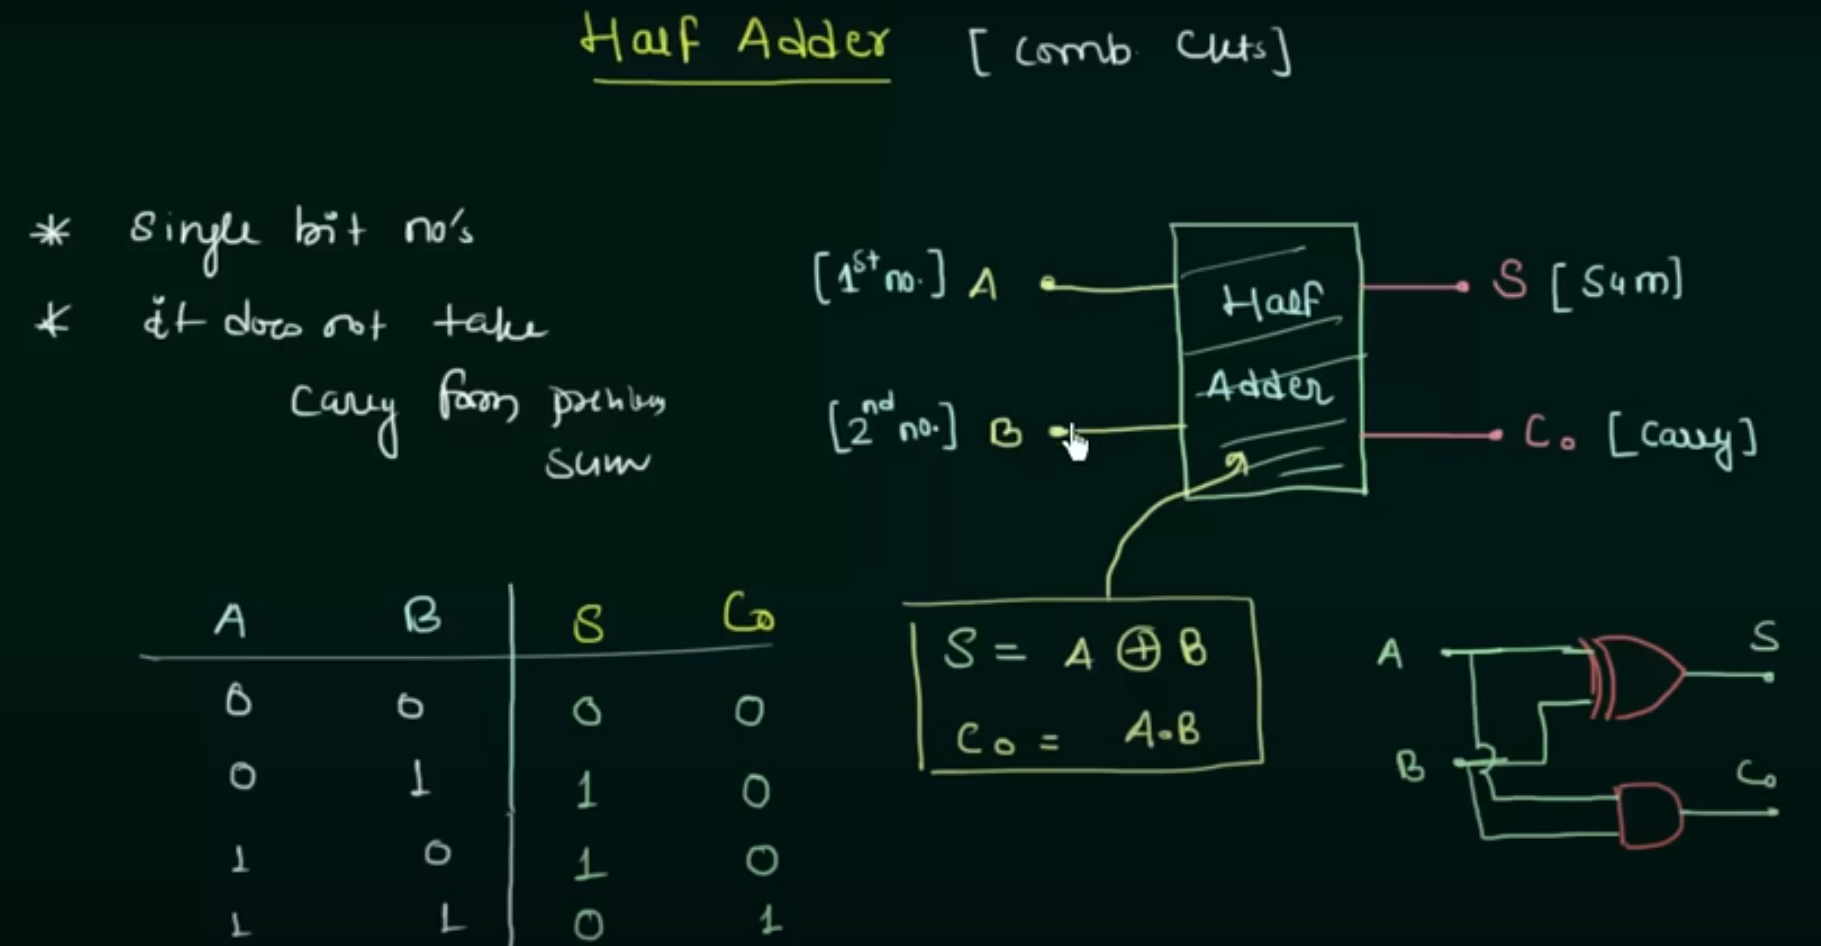 Half Adder [Comb. Ckts]
* Single bit no's
* it does not take
carry from previous
sum
[1st no.] A
[2nd no.] B
Half
Adder
S [Sum]
Co [Carry]
A B S Co
0 0 0 0
0 1 1 0
1 0 1 0
1 1 0 1
S = A ⊕ B
Co = A.B
A
B
S
Co